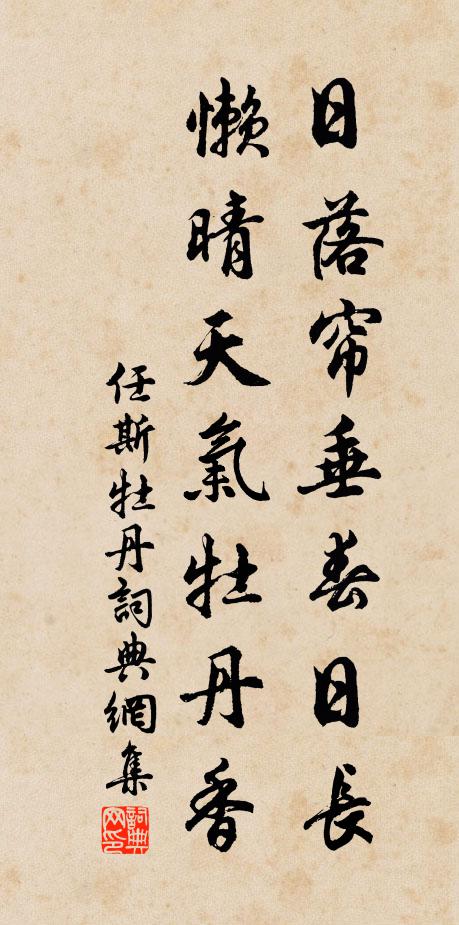 日落帘垂春日長
懶晴天氣牡丹香
任斯牡丹詞典網集
詞典网印